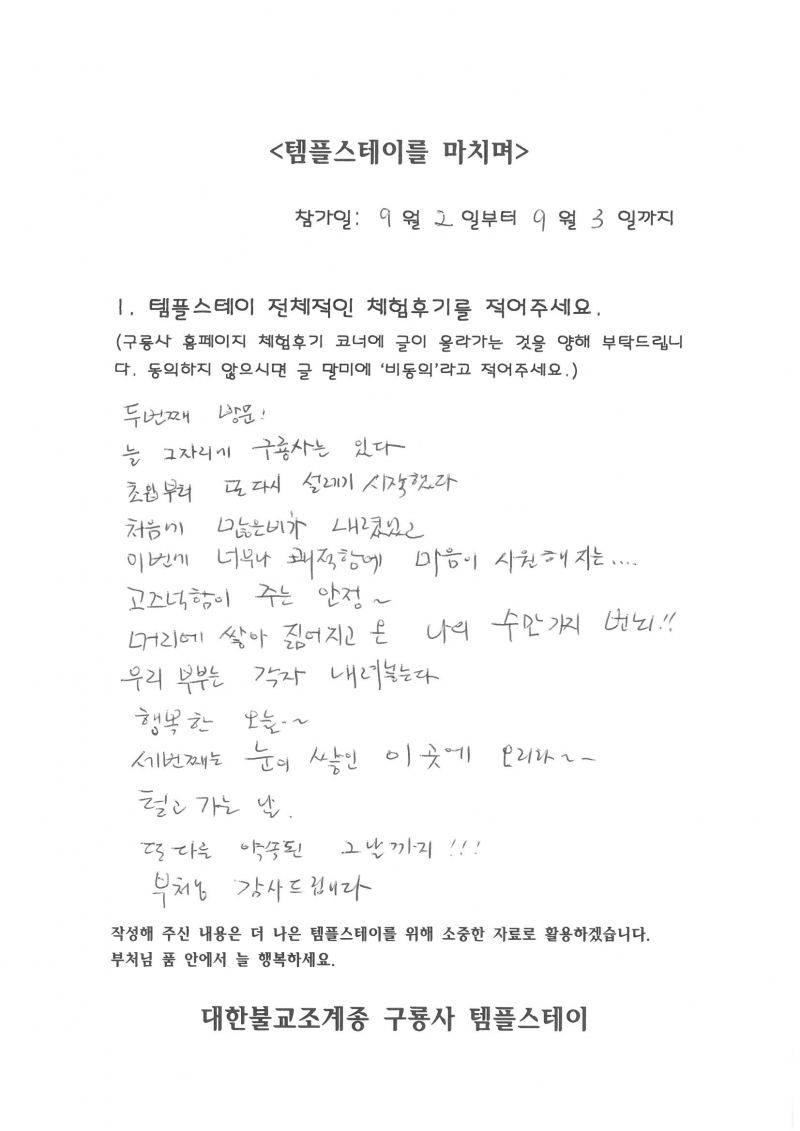 <템플스테이를 마치며>
참가일: 9 월 2 일부터 9 월 3 일까지
1. 템플스테이 전체적인 체험후기를 적어주세요.
(구룡사 홈페이지 체험후기 코너에 글이 올라가는 것을 양해 부탁드립니
다. 동의하지 않으시면 글 말미에 '비동의'라고 적어주세요.)
두번째 방문!
늘 그자리에 구룡사는 있다
초입부터 또다시 설레기 시작했다
처음에 많은비가 내렸었고
이번에 너무나 쾌적함에 마음이 시원해지는....
고즈넉함이 주는 안정~
머리에 쌓아 짊어지고 온 나의 수만가지 번뇌!!
우리 부부는 각자 내려놓는다
행복한 오늘..~
세번째는 눈이 쌓인 이 곳에 오리라~~
털고 가는 날.
또다음 약속된 그날까지!!!
부처님 감사드립니다
작성해 주신 내용은 더 나은 템플스테이를 위해 소중한 자료로 활용하겠습니다.
부처님 품 안에서 늘 행복하세요.
대한불교조계종 구룡사 템플스테이